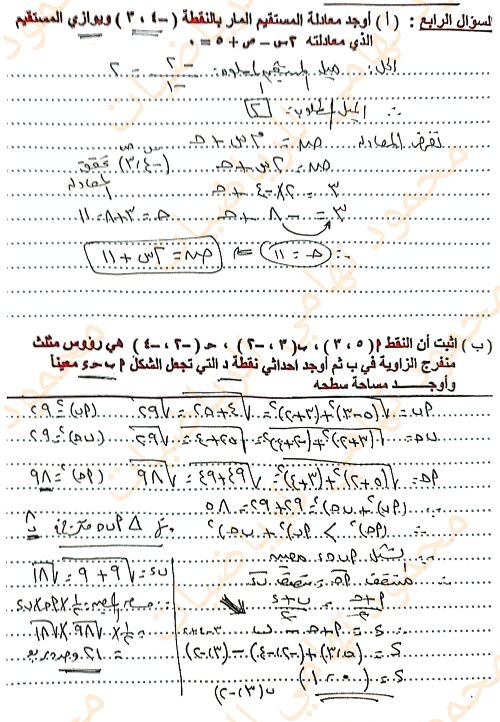 لسؤال الرابع : ( أ ) أوجد معادلة المستقيم المار بالنقطة ( -٤ ، ٣ ) ويوازي المستقيم
الذي معادلته ٢س - ص + ٥ = ٠
الحل: ميل المستقيم المعلوم = -٢ / -١ = ٢
∴ الميل المطلوب = ٢
نفرض المعادلة ص = م س + حـ
ص = ٢س + حـ (-٤ ، ٣) تحقق المعادلة
٣ = ٢ × -٤ + حـ
٣ = -٨ + حـ حـ = ٣ + ٨ = ١١
∴ حـ = ١١ ⇐ ص = ٢س + ١١
( ب ) اثبت أن النقط م( ٥ ، ٣ ) ، ب( ٣ ، -٢ ) ، حـ ( -٢ ، -٤ ) هي رؤوس مثلث
منفرج الزاوية في ب ثم أوجد احداثي نقطة د التي تجعل الشكل م ب حـ د معيناً
وأوجد مساحة سطحه
م ب = √(٥-٣)²+(٣+٢)² = √٤+٢٥ = √٢٩ (م ب)² = ٢٩
ب حـ = √(٣+٢)²+(-٢+٤)² = √٢٥+٤ = √٢٩ (ب حـ)² = ٢٩
م حـ = √(٥+٢)²+(٣+٤)² = √٤٩+٤٩ = √٩٨ (م حـ)² = ٩٨
(م ب)² + (ب حـ)² = ٢٩ + ٢٩ = ٥٨
∴ (م حـ)² > (م ب)² + (ب حـ)² ∴ Δ م ب حـ منفرج في ب
∵ الشكل م ب حـ د معين
∴ منتصف م حـ = منتصف ب د
م + حـ / ٢ = ب + د / ٢
∴ د = م + حـ - ب
د = (٣،٥) + (-٢،-٤) - (٣،-٢)
د = (٠ ، ١)
ب (٣،-٢)
ب د = √٩ + ٩ = √١٨
مساحة المعين = ١/٢ × م حـ × ب د
= ١/٢ × √٩٨ × √١٨
= ٢١ وحدة مربعة
محمود تهامي الرياضيات